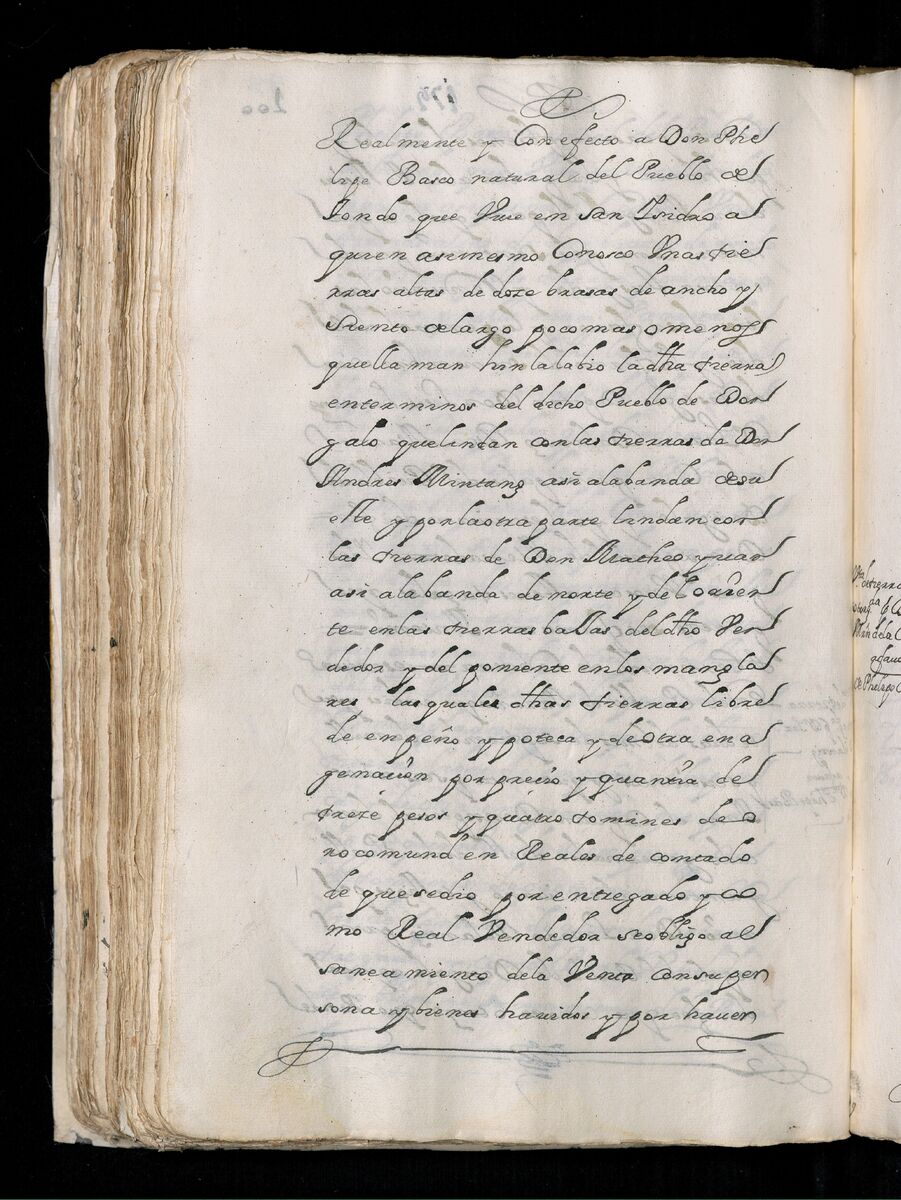 Realmente y Con efecto a Don Phe
lipe Basco natural del Pueblo de
Tondo que Viue en san Isidro a
quien asimesmo Conosco Vnas tie
rras altas de doze brasas de ancho y
siento de largo poco mas o menos
que llaman hinlalabio la dha tierra
en terminos del dicho Pueblo de Don
galo que lindan con las tierras de Don
Andres Mintang asi a la banda de su
este y por la otra parte lindan con
las tierras de Don Matheo yuan
asi a la banda de norte y del orien
te en las tierras baxas del dho Ven
dedor y del poniente en los mangla
res las quales dhas tierras libre
de enpeño ypoteca y de otra ena
genación por precio y quantia de
treze pesos y quatro tomines de o
ro comund en Reales de contado
de que se dio por entregado y co
mo Real Vendedor se obligo al
saneamiento de la Venta con su per
sona y bienes hauidos y por hauer